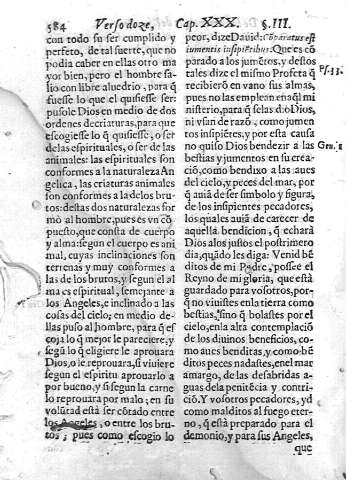 584 Verso doze, Cap. XXX. §. III.
con todo su ser cumplido y
perfeto, de tal suerte, que no
podia caber en ellas otro ma
yor bien, pero el hombre sa-
lio con libre aluedrio, para q̃
fuesse lo que el quisiesse ser:
pusole Dios en medio de dos
ordenes de criaturas, para que
escogiesse lo q̃ quisiesse, o ser
de las espirituales, o ser de las
animales: las espirituales son
conformes a la naturaleza An
gelica, las criaturas animales
son conformes a la de los bru-
tos: destas dos naturalezas for
mò al hombre, pues es vn cō
puesto, que consta de cuerpo
y alma: segun el cuerpo es ani
mal, cuyas inclinaciones son
terrenas y muy conformes a
las de los brutos, y segun el al
ma es espiritual, semejante a
los Angeles, e inclinado a las
cosas del cielo; en medio de-
llas puso al hombre, para q̃ es
coja lo q̃ mejor le pareciere, y
segū lo q̃ eligiere le aprouara
Dios, o le reprouara, si viuiere
segun el espiritu aprouarlo a
por bueno, y si segun la carne
lo reprouara por malo; en su
volūtad està ser cōtado entre
los Angeles, o entre los bru-
tos, pues como escogio lo
peor, dize Dauid: cōparatus est
iumentis insipiētibus. Que es cō
parado a los jumētos, y destos
tales dize el mismo Profeta q̃
recibierō en vano sus almas,
pues no las emplean en aq̃l mi
nisterio, para q̃ se las dio Dios,
ni vsan de razō, como jumen
tos insipiētes, y por esta causa
no quiso Dios bendezir a las
bestias y jumentos en su crea-
ciō, como bendixo a las aues
del cielo, y peces del mar, por
q̃ auiā de ser simbolo y figura,
de los insipientes pecadores,
los quales auiā de carecer de
aquella bendicion, q̃ echarà
Dios a los justos el postrimero
dia, quādo les diga: Venid bē
ditos de mi Padre, possee el
Reyno de mi gloria, que està
guardado para vosotros, por-
q̃ no viuistes en la tierra como
bestias, sino q̃ bolastes por el
cielo, en la alta contemplaciō
de los diuinos beneficios, co-
mo aues benditas, y como bē
ditos peces nadastes, en el mar
amargo, de las desabridas a-
guas de la penitēcia y contri-
ciō. Y vosotros pecadores, yd
como malditos al fuego eter-
no, q̃ està preparado para el
demonio, y para sus Angeles,
que